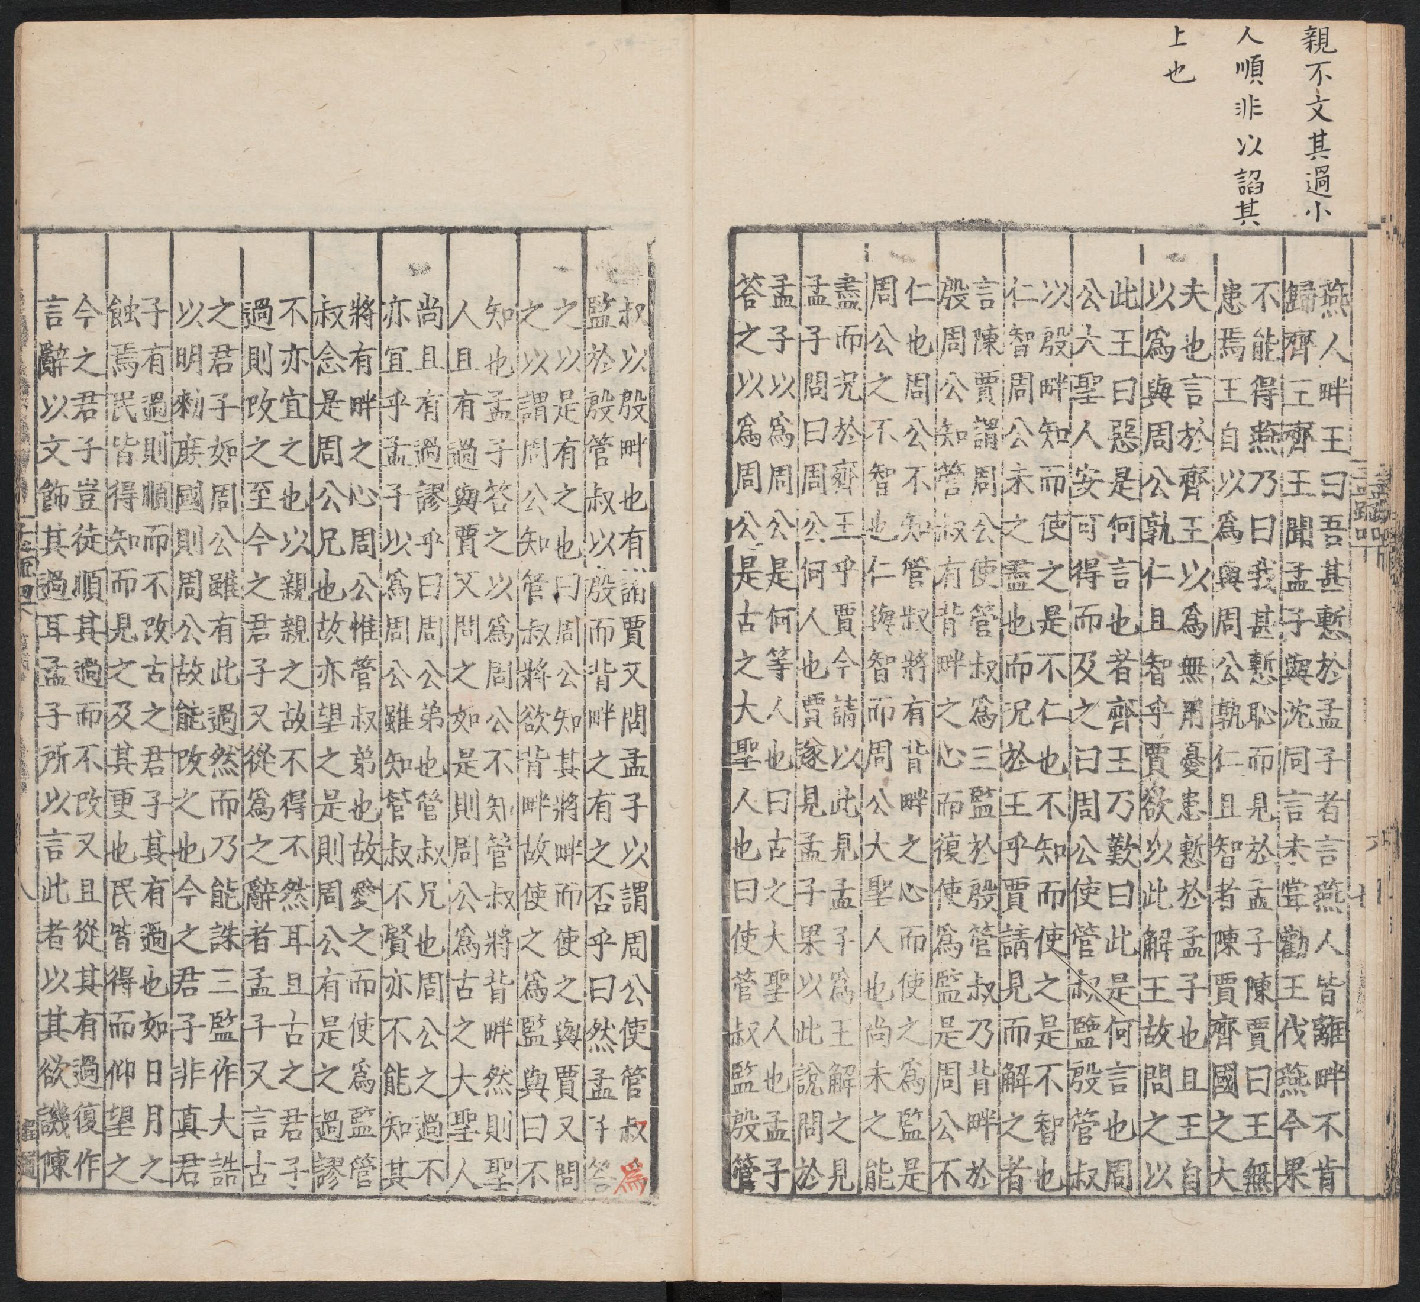 親不文其過小
人順非以諂其
上也
燕人畔王曰吾甚慙於孟子者言燕人皆離畔不肯
歸齊王齊王聞孟子與沈同言未甞勸王伐燕今果
不能得燕乃曰我甚慙恥而見於孟子陳賈曰王無
患焉王自以爲與周公孰仁且智者陳賈齊國之大
夫也言於齊王以爲無用憂患慙於孟子也且王自
以爲與周公孰仁且智乎賈欲以此解王故問之以
此王曰惡是何言也者齊王乃歎曰此是何言也周
公大聖人安可得而及之曰周公使管叔監殷管叔
以殷畔知而使之是不仁也不知而使之是不智也
仁智周公未之盡也而况於王乎賈請見而解之者
言陳賈謂周公使管叔爲三監於殷管叔乃背畔於
殷周公知管叔有背畔之心而復使爲監是周公不
仁也周公不知管叔將有背畔之心而使之爲監是
周公之不智也仁與智而周公大聖人也尚未之能
盡而况於齊王乎賈今請以此見孟子爲王解之見
孟子問曰周公何人也賈遂見孟子果以此說問於
孟子以爲周公是何等人也曰古之大聖人也孟子
答之以爲周公是古之大聖人也曰使管叔監殷管
叔以殷畔也有諸賈又問孟子以謂周公使管叔爲
監於殷管叔以殷而背畔之有之否乎曰然孟子答
之以是有之也曰周公知其將畔而使之與賈又問
之以謂周公知管叔將欲背畔故使之爲監與曰不
知也孟子答之以爲周公不知管叔將背畔然則聖
人且有過與賈又問之如是則周公爲古之大聖人
尚且有過謬乎曰周公弟也管叔兄也周公之過不
亦宜乎孟子以爲周公雖知管叔不賢亦不能知其
將有畔之心周公惟管叔弟也故愛之而使爲監管
叔念是周公兄也故亦望之是則周公有是之過謬
不亦宜之也以親親之故不得不然耳且古之君子
過則改之至今之君子又從爲之辭者孟子又言古
之君子如周公雖有此過然而乃能誅三監作大誥
以明勑庶國則周公故能改之也今之君子非真君
子有過則順而不改古之君子其有過也如日月之
蝕焉民皆得知而見之及其更也民皆得而仰望之
今之君子豈徒順其過而不改又且從其有過復作
言辭以文飾其過耳孟子所以言此者以其欲譏陳
八